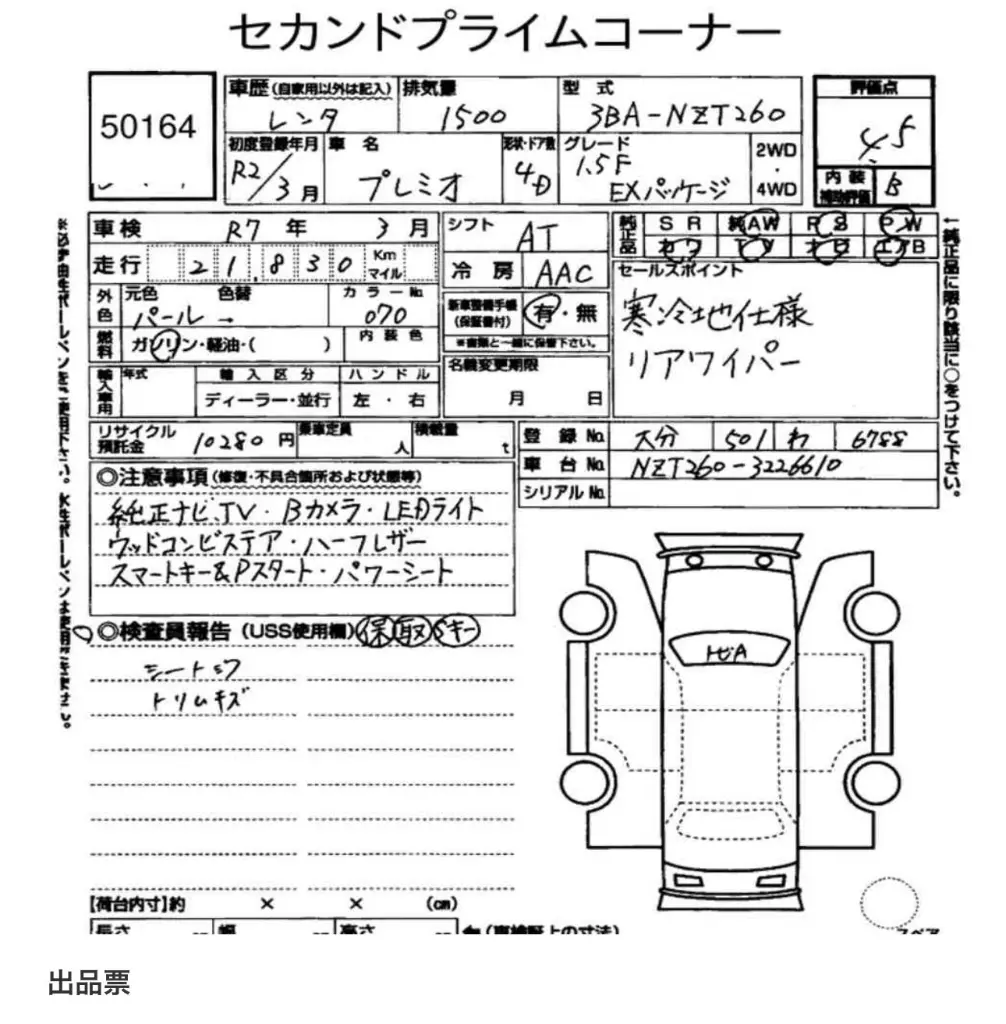 セカンドプライムコーナー
50164
車歴 (自家用以外は記入) 排気量 型式 評価点
レンタ 1500 3BA-NZT260 4.5
初度登録年月 車名 形状・ドア数 グレード 2WD・4WD
R2/3月 プレミオ 4D 1.5F EXパッケージ
内装補助評価 B
車検 R7年 3月 シフト AT
純正品 SR 純AW RS PW
走行 21,830 Km マイル 冷房 AAC
外色 元色 色替 カラーNo.
パール → 070
新車整備手帳(保証書付) 有・無
※書類と一緒に保管下さい。
セールスポイント
寒冷地仕様
リアワイパー
燃料 ガソリン・軽油・( ) 内装色
名義変更期限
月 日
輸入車用 年式 輸入区分 ハンドル
ディーラー・並行 左・右
リサイクル預託金 10280円 乗車定員 人 積載量 t
登録No. 大分 501 わ 6788
車台No. NZT260-3226610
シリアルNo.
◎注意事項(修復・不具合箇所および状態等)
純正ナビ、TV・Bカメラ・LEDライト
ウッドコンビステア・ハーフレザー
スマートキー&Pスタート・パワーシート
◎検査員報告(USS使用欄) 保 取 Sキー
シートシワ
トリムキズ
【荷台内寸】約 × × (cm)
長さ 幅 高さ (車検証上の寸法)
スペア
↑純正品に限り該当に○をつけて下さい。
出品票